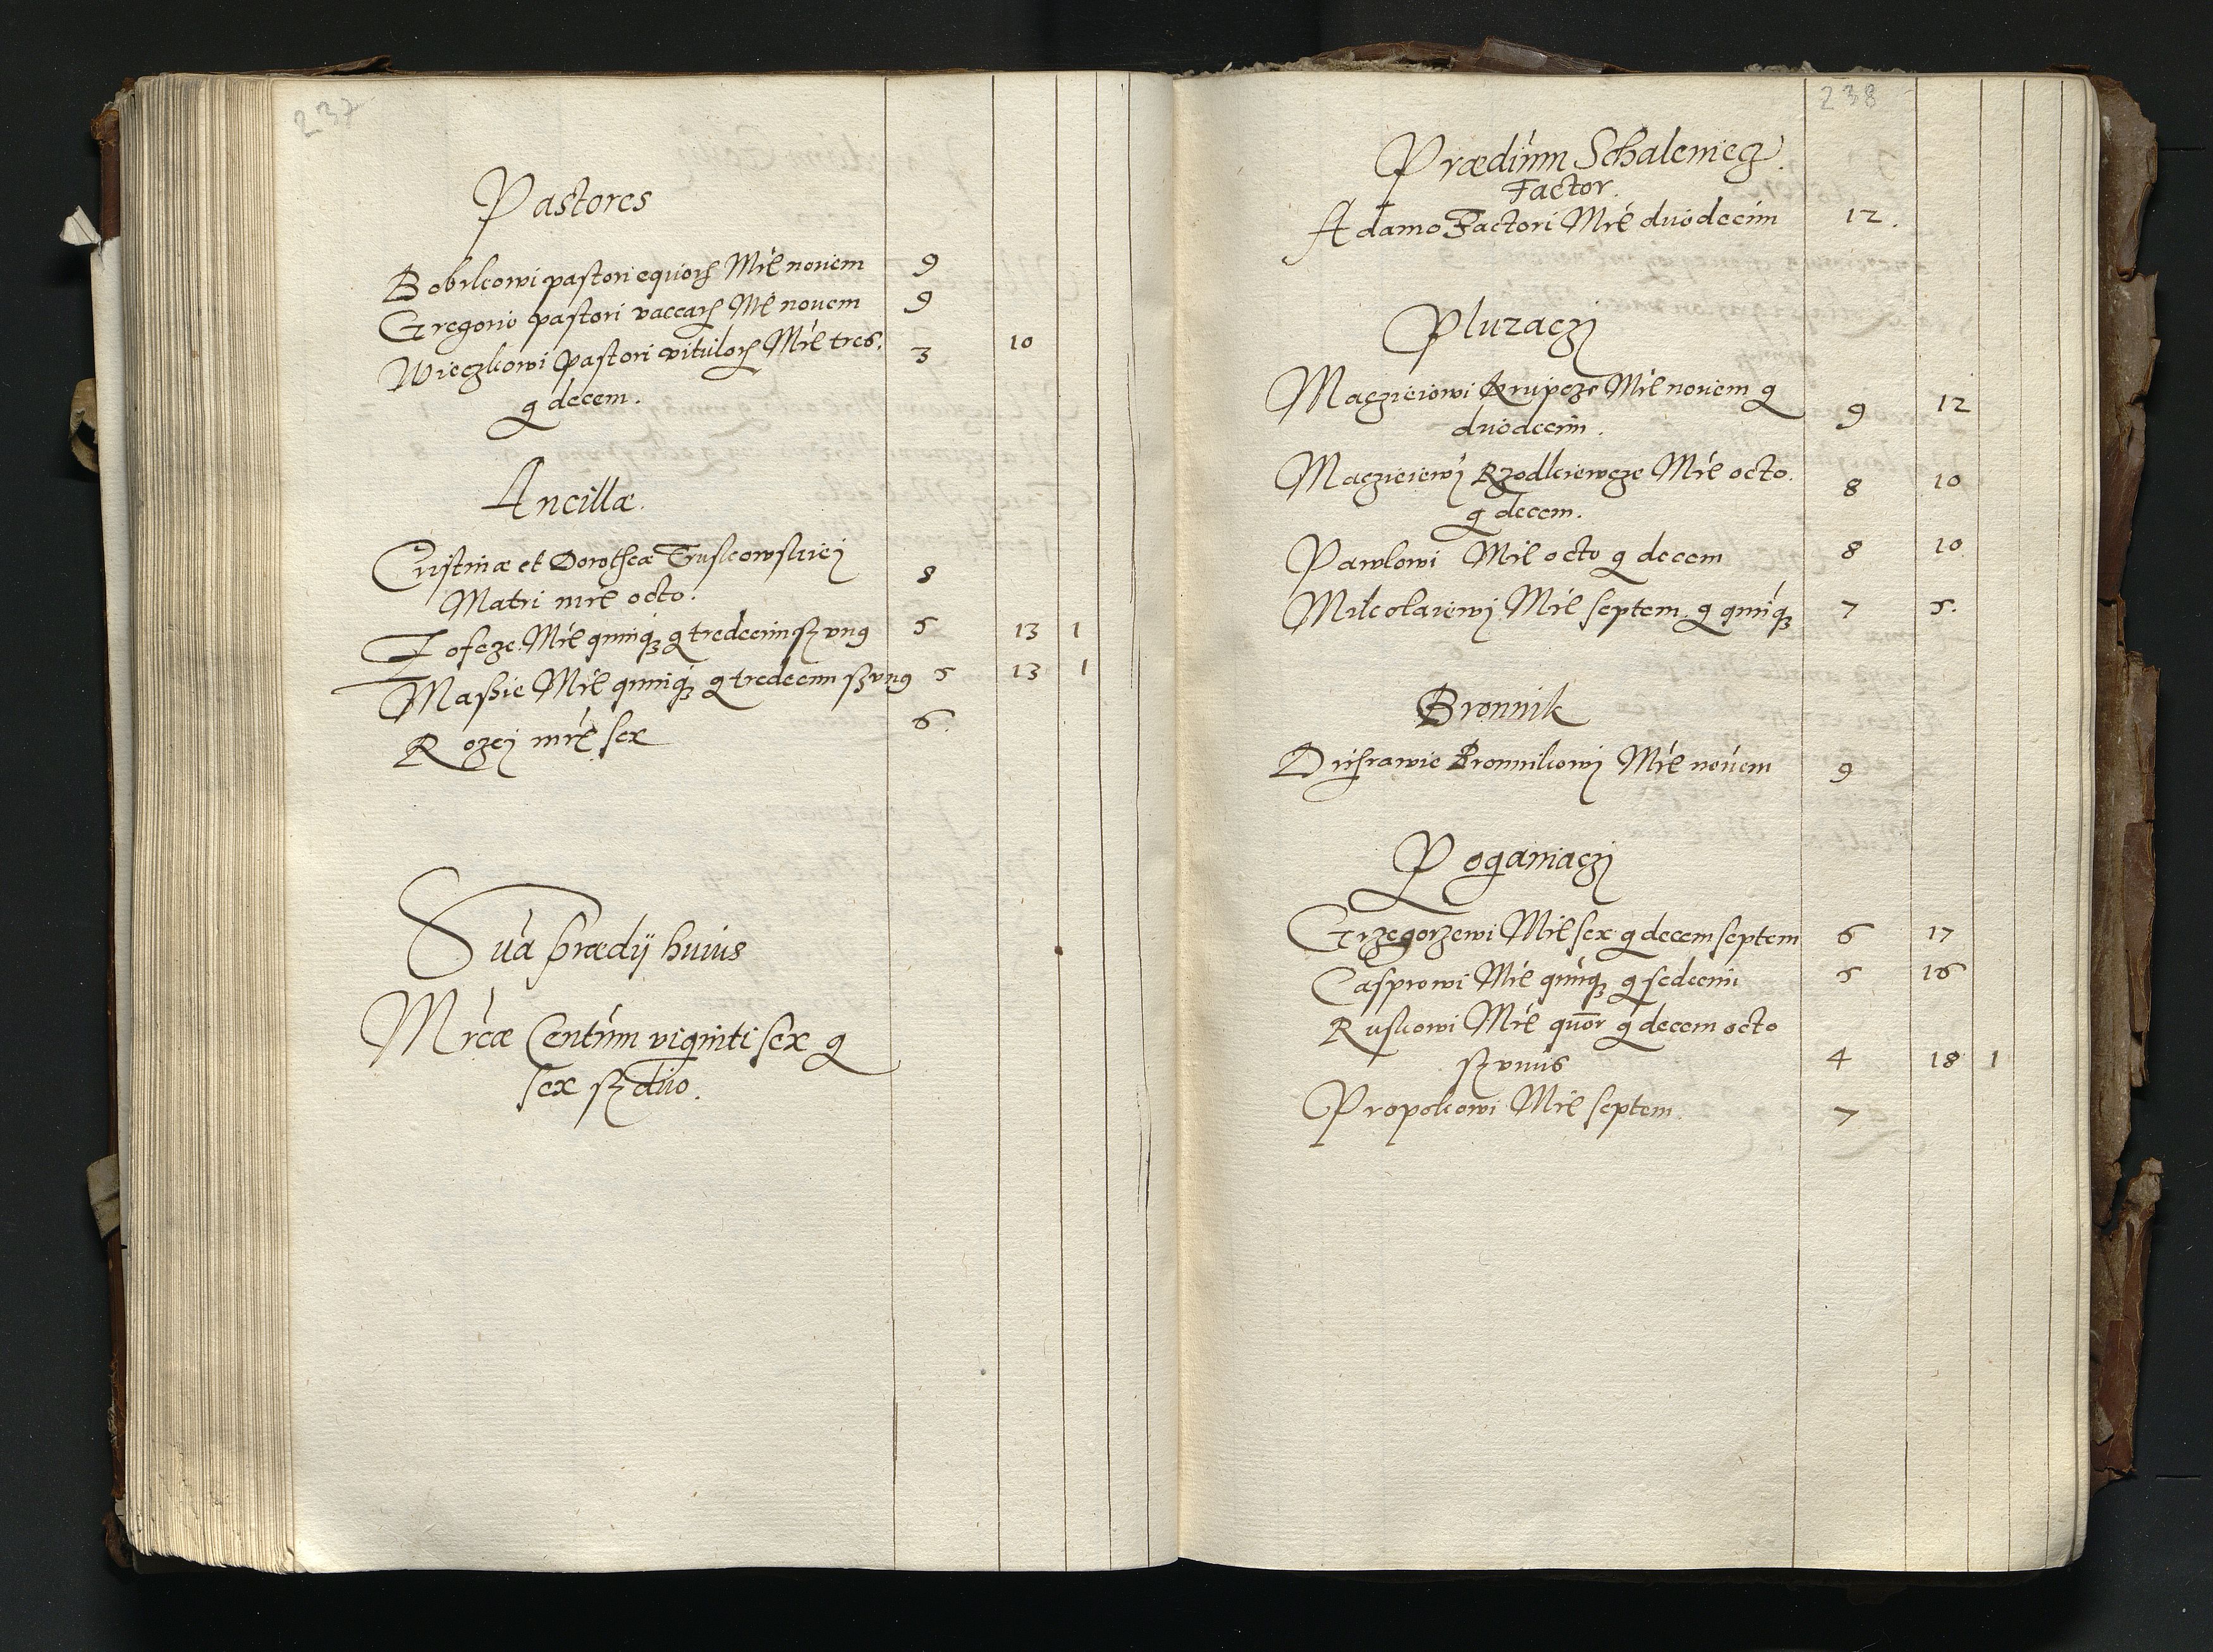 237
Pastores
Bobrkowi pastori equorꝝ Mrč novem 9
Gregorio pastori vaccarꝝ Mrč novem 9
Wieczkowi pastori vitulorꝝ Mrč tres. 3 10
g decem.
Ancillæ.
Cristinæ et Dorotheæ Truskowskiej
Matri mrč octo. 8
Zofcze Mrč quinqȝ g tredecim sz vnꝰ 5 13 1
Maßie Mrč quinqȝ g tredecim sz vnꝰ 5 13 1
Rozej mrč sex 6.
Sūa prædij huius
Mrcæ Centum viginti sex g
sex sz duo.
238
Prædium Schalenieg
Factor.
Adamo Factori Mrč duodecim 12.
Pluzaczÿ
Maczieiowi Krupcze Mrč novem g
duodecim. 9 12
Maczieiewÿ Rzodkiewcze Mrč octo. 8 10
g decem.
Pawlowi Mrč octo g decem 8 10
Mikolaiewÿ Mrč septem g quinqȝ 7 5.
Bronnik
Bronnikowÿ Mrč novem 9
Poganiaczÿ
Grzegorzewi Mrč sex g decem septem 6 17
Casprowi Mrč quinqȝ g sedecim 5 16
Ruskowi Mrč quor g decem octo
sz vnus 4 18 1
Propokowi Mrč septem. 7